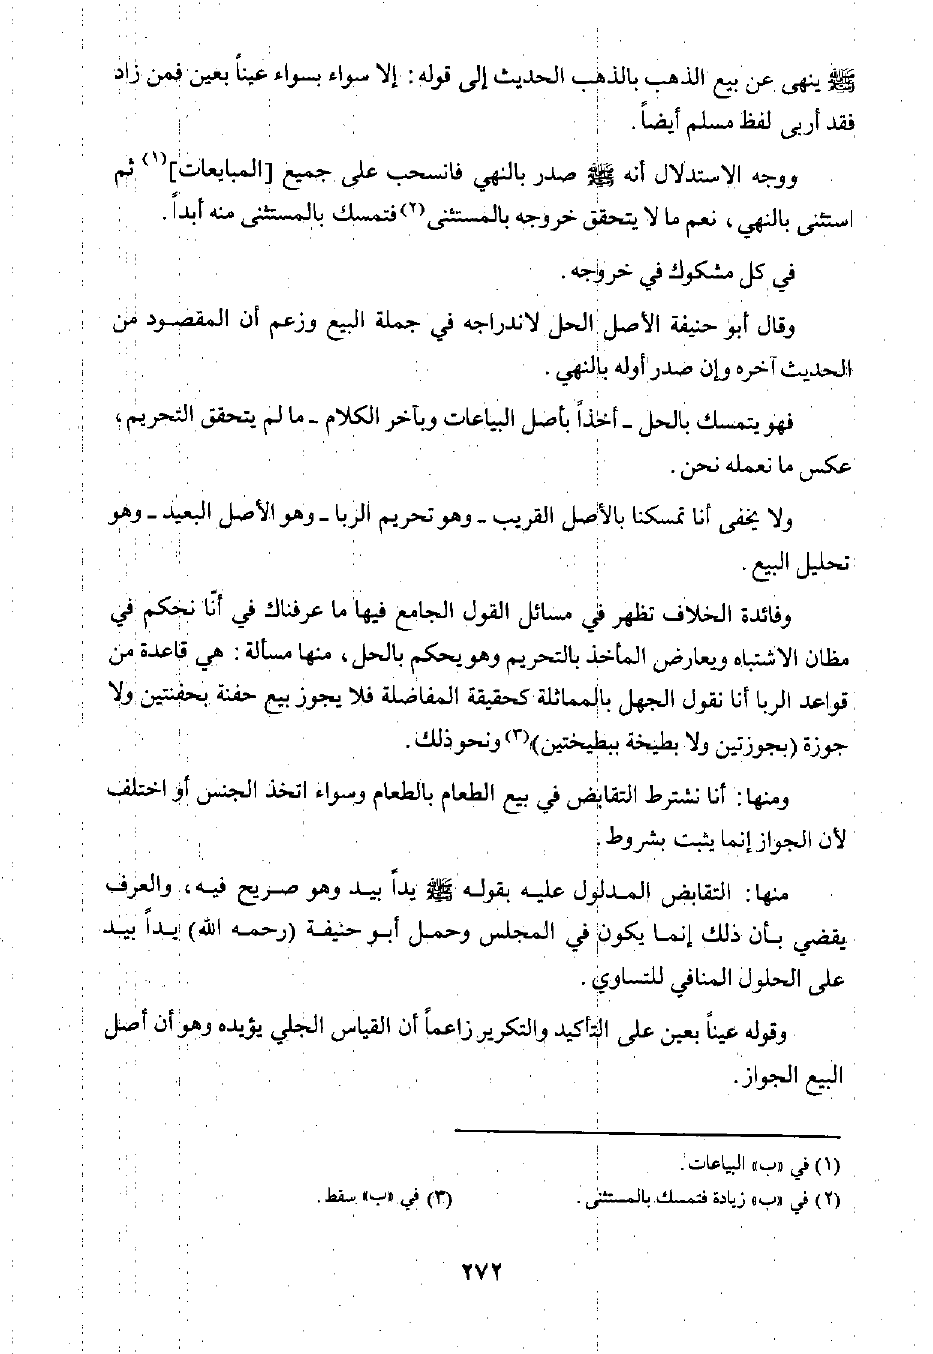 ﷺ ينهى عن بيع الذهب بالذهب الحديث إلى قوله: إلا سواء بسواء عيناً بعين فمن زاد
فقد أربى لفظ مسلم أيضاً.
ووجه الاستدلال أنه ﷺ صدر بالنهي فانسحب على جميع [المبايعات](١) ثم
استثنى بالنهي، نعم ما لا يتحقق خروجه بالمستثنى(٢) فتمسك بالمستثنى منه أبداً.
في كل مشكوك في خروجه.
وقال أبو حنيفة الأصل الحل لاندراجه في جملة البيع وزعم أن المقصود من
الحديث آخره وإن صدر أوله بالنهي.
فهو يتمسك بالحل ـ أخذاً بأصل البياعات وبآخر الكلام ـ ما لم يتحقق التحريم،
عكس ما نعمله نحن.
ولا يخفى أنا تمسكنا بالأصل القريب ـ وهو تحريم الربا ـ وهو الأصل البعيد ـ وهو
تحليل البيع.
وفائدة الخلاف تظهر في مسائل القول الجامع فيها ما عرفناك في أنّا نحكم في
مظان الاشتباه ويعارض المأخذ بالتحريم وهو يحكم بالحل، منها مسألة: هي قاعدة من
قواعد الربا أنا نقول الجهل بالمماثلة كحقيقة المفاضلة فلا يجوز بيع حفنة بحفنتين ولا
جوزة (بجوزتين ولا بطيخة ببطيختين)(٣) ونحو ذلك.
ومنها: أنا نشترط التقابض في بيع الطعام بالطعام وسواء اتخذ الجنس أو اختلف
لأن الجواز إنما يثبت بشروط.
منها: التقابض المدلول عليه بقوله ﷺ يداً بيد وهو صريح فيه، والعرف
يقضي بأن ذلك إنما يكون في المجلس وحمل أبو حنيفة (رحمه الله) يداً بيد
على الحلول المنافي للتساوي.
وقوله عيناً بعين على التأكيد والتكرير زاعماً أن القياس الجلي يؤيده وهو أن أصل
البيع الجواز.
(١) في «ب» البياعات.
(٢) في «ب» زيادة فتمسك بالمستثنى. (٣) في «ب» سقط.
٢٧٢